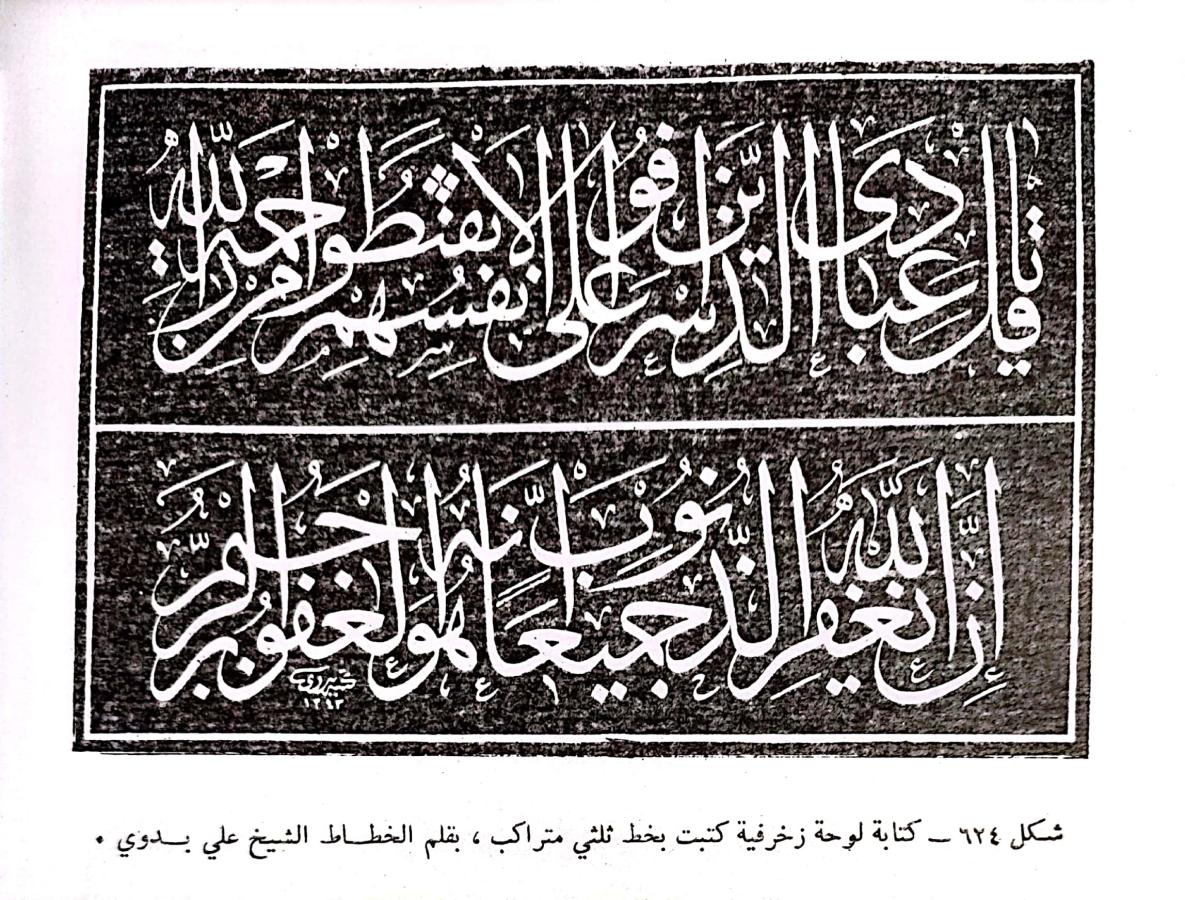 قُلْ يَا عِبَادِيَ الَّذِينَ أَسْرَفُوا عَلَى أَنْفُسِهِمْ لَا تَقْنَطُوا مِنْ رَحْمَةِ اللَّهِ
إِنَّ اللَّهَ يَغْفِرُ الذُّنُوبَ جَمِيعًا إِنَّهُ هُوَ الْغَفُورُ الرَّحِيمُ
شكل ٦٢٤ ــ كتابة لوحة زخرفية كتبت بخط ثلثي متراكب ، بقلم الخطــاط الشيخ علي بــدوي .